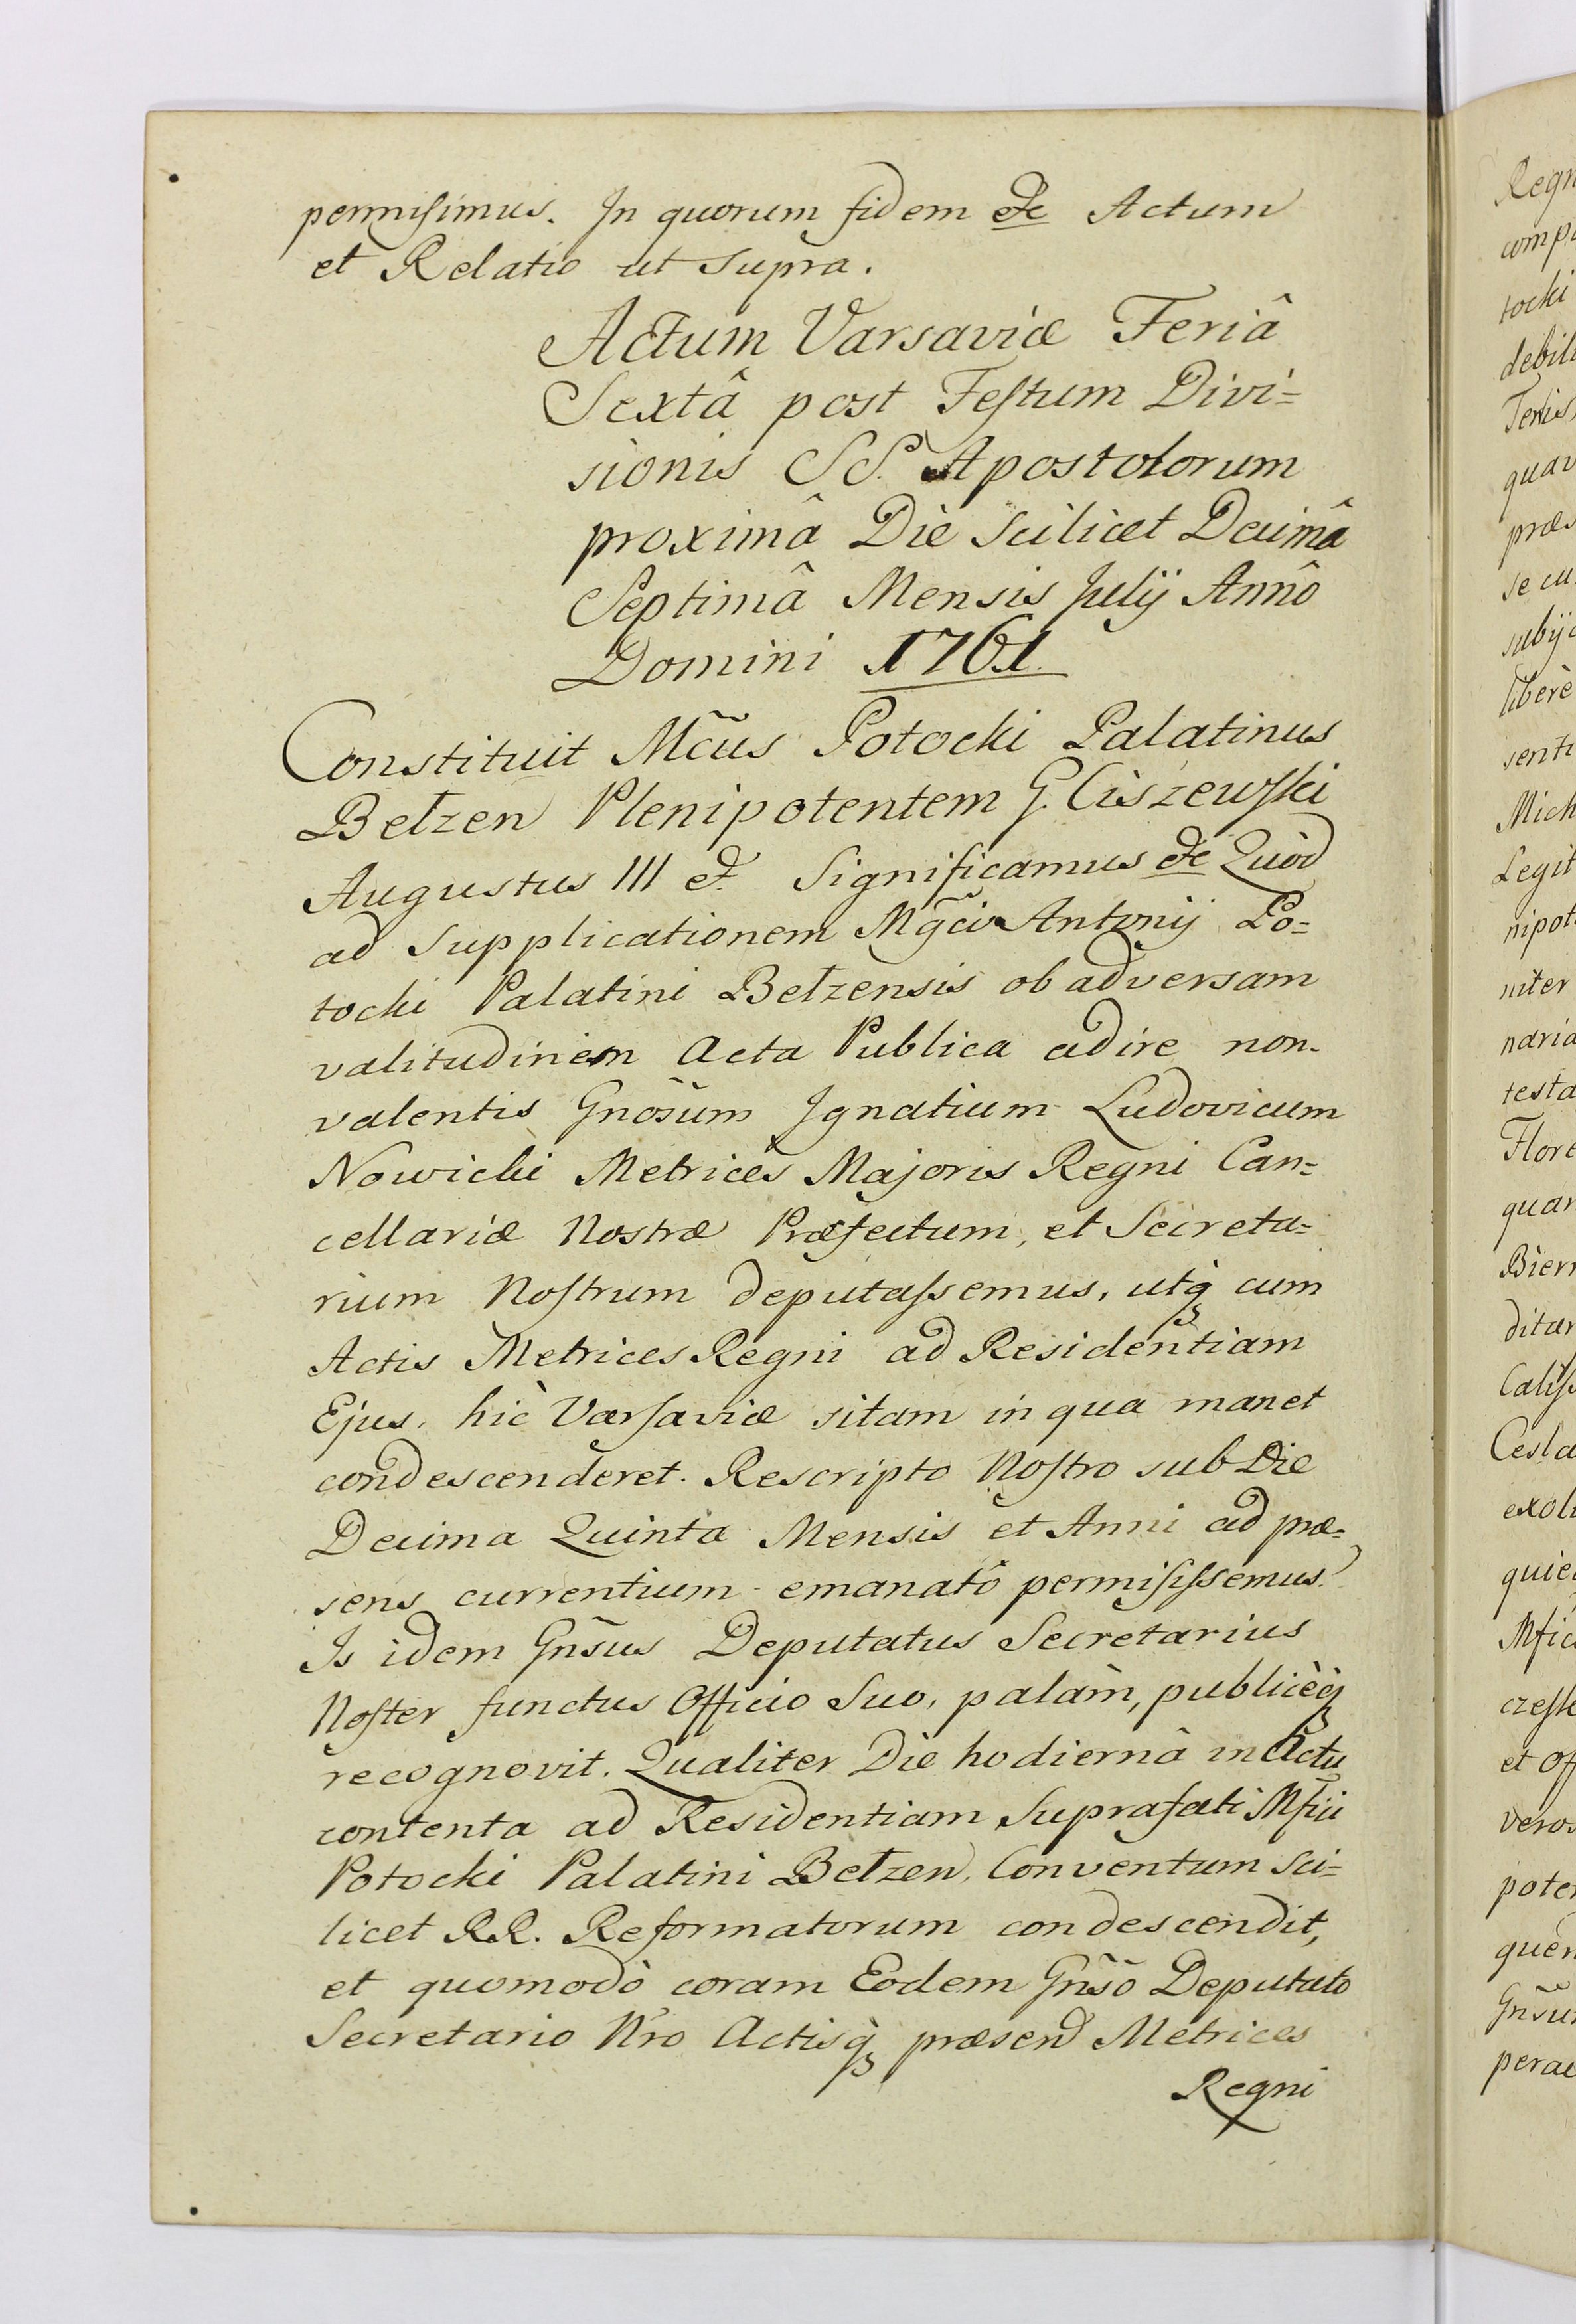 permisimus. In quorum fidem etc Actum
et Relatio ut supra.
Actum Varsaviæ Feriâ
Sextâ post Festum Divi=
sionis SS. Apostolorum
proximâ Die scilicet Decimâ
Septimâ Mensis Julij Annô
Domini 1761.
Constituit Mcũs Potocki Palatinus
Bełzen Plenipotentem G. Ciszewski
Augustus III et. Significamus etc Quòd
ad supplicationem Mgc̃i Antonij Po=
tocki Palatini Bełzensis ob adversam
valitudinem Acta Publica adire non
valentis Gnõsum Ignatium Ludovicum
Nowicki Metrices Majoris Regni Can=
cellariæ Nostræ Præfectum, et Secreta=
rium Nostrum deputassemus, utq̃ cum
Actis Metrices Regni ad Residentiam
Ejus, hic Varsaviæ sitam in qua manet
condescenderet. Rescripto Nostro sub Die
Decima Quinta Mensis et Anni ad præ=
sens currentium emanatô permisissemus.
Is idem Gnsũs Deputatus Secretarius
Noster functus Officio Suo, palàm, publicèq̃
recognovit. Qualiter Die hodiernâ in Actu
contenta ad Residentiam Suprafati Mfici
Potocki Palatini Bełzen. Conventum sci=
licet RR. Reformatorum condescendit,
et quomodò coram Eodem Gnsõ Deputato
Secretario Nro Actisq̃ præsen Metrices
Regni
Regn
comp
tocki
debil
quav
præs
se cu
subij
liberè
senti
Mich
Legit
nipot
niter
naria
testa
Flore
quar
Bier
ditar
Caliss
Cesla
exol
quie
et off
veros
pote
quen
Gnsu
perac